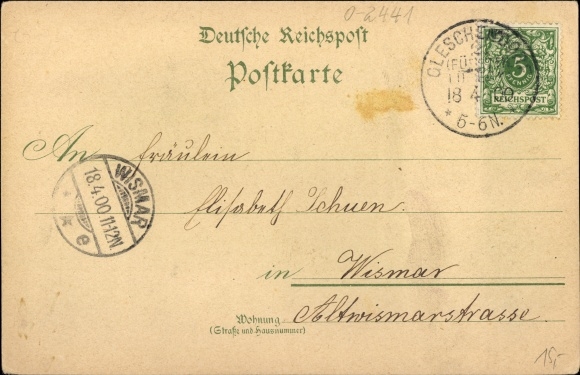 0-2441
Deutsche Reichspost
Postkarte
5
REICHSPOST
18 4 00
* 5-6N.
An Fräulein
WISMAR
18.4.00.11-12N
* e
Elisabeth Schuen.
in Wismar
Altwismarstrasse.
Wohnung
(Straße und Hausnummer)
15,-